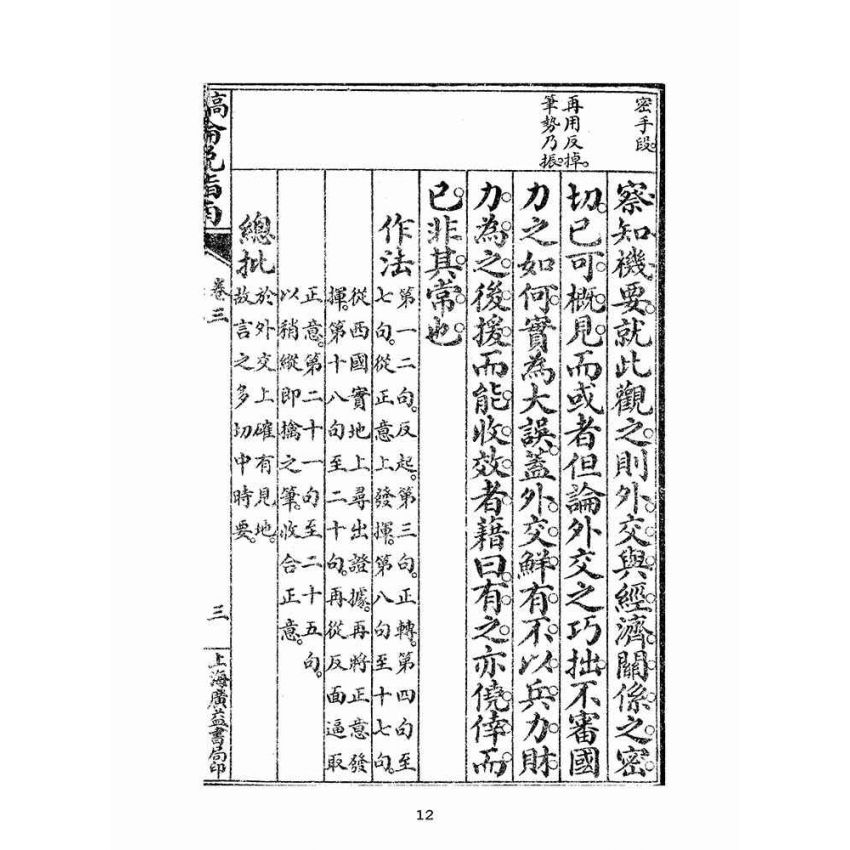 密手段。
再用反掉。
筆勢乃振。
察知禨要。就此觀之。則外交與經濟關係之密
切。已可概見。而或者但論外交之巧拙。不審國
力之如何。實為大誤。蓋外交鮮有不以兵力財
力為之後援。而能收效者。藉曰有之。亦僥倖而
已。非其常也。
作法
第一二句。反起。第三句。正轉。第四句至
七句。從正意上發揮。第八句至十七句。
從西國實地上尋出證據。再將正意發
揮。第十八句至二十句。再從反面逼取
正意。第二十一句至二十五句。
以稍縱即擒之筆。收合正意。
總批
於外交上確有見地。
故言之多切中時要。
指南
卷三
三
上海廣益書局印
12